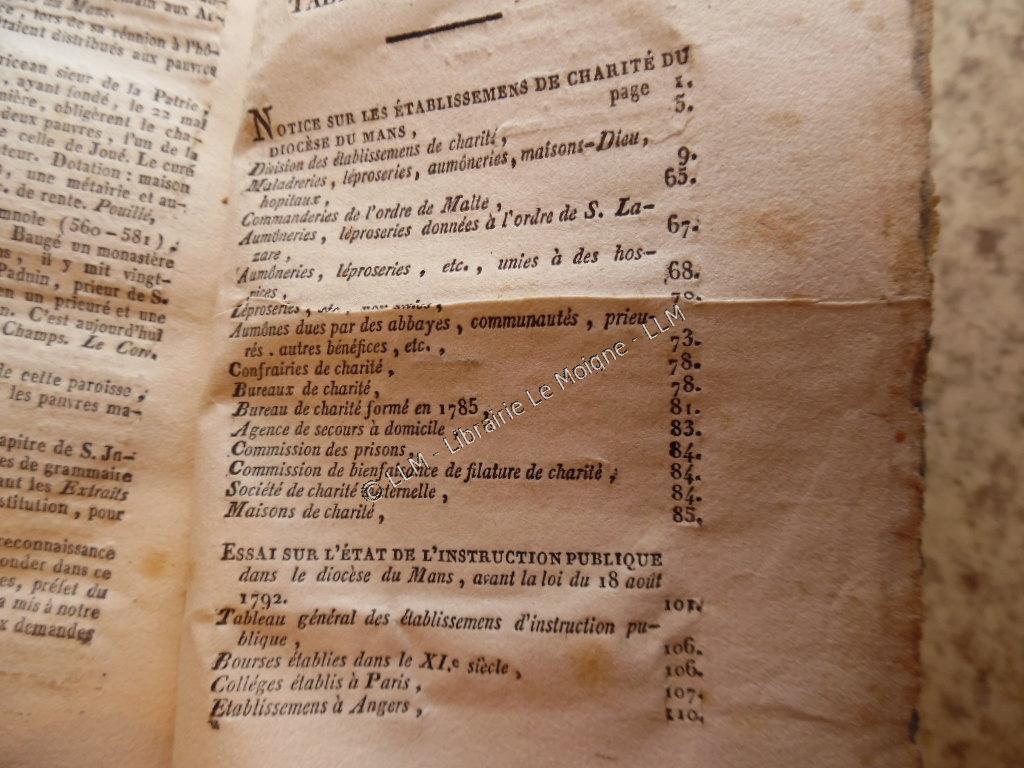 main aux Ar-
du Mans.
, lors de sa réunion à l'hô-
taient distribués aux pauvres
ricean sieur de la Patrie,
, ayant fondé, le 22 mai
nière, obligèrent le cha-
deux pauvres, l'un de la
e celle de Joué. Le curé
teur. Dotation : maison
, une métairie et au-
de rente. Pouillé,
mnole (560-581);
Baugé un monastère
s, il y mit vingt-
Padnin, prieur de S.
en un prieuré et une
n. C'est aujourd'hui
Champs. Le Corv.
de cette paroisse;
les pauvres ma-
apitre de S. Ju-
es de grammaire
ant les Extraits
stitution, pour
reconnaissance
onder dans ce
es, préfet du
a mis à notre
x demandes
NOTICE SUR LES ÉTABLISSEMENS DE CHARITÉ DU
DIOCÈSE DU MANS, page 1.
Division des établissemens de charité, 5.
Maladreries, léproseries, aumôneries, maisons-Dieu,
hopitaux, 9.
Commanderies de l'ordre de Malte, 65.
Aumôneries, léproseries données à l'ordre de S. La-
zare, 67.
Aumôneries, léproseries, etc., unies à des hos-
pices, 68.
Léproseries, etc. non unies, 70.
Aumônes dues par des abbayes, communautés, prieu-
rés. autres bénéfices, etc., 73.
Confrairies de charité, 78.
Bureaux de charité, 78.
Bureau de charité formé en 1785, 81.
Agence de secours à domicile, 83.
Commission des prisons, 84.
Commission de bienfaisance de filature de charité, 84.
Société de charité maternelle, 84.
Maisons de charité, 85.
ESSAI SUR L'ÉTAT DE L'INSTRUCTION PUBLIQUE
dans le diocèse du Mans, avant la loi du 18 août
1792. 101.
Tableau général des établissemens d'instruction pu-
blique, 106.
Bourses établies dans le XI.e siècle, 106.
Colléges établis à Paris, 107.
Etablissemens à Angers, 110.
© LLM - Librairie Le Moigne - LLM